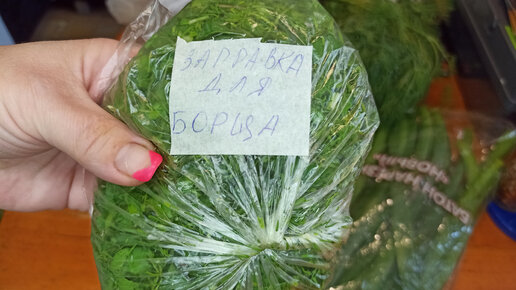 ЗАПРАВКА
ДЛЯ
БОРЩА